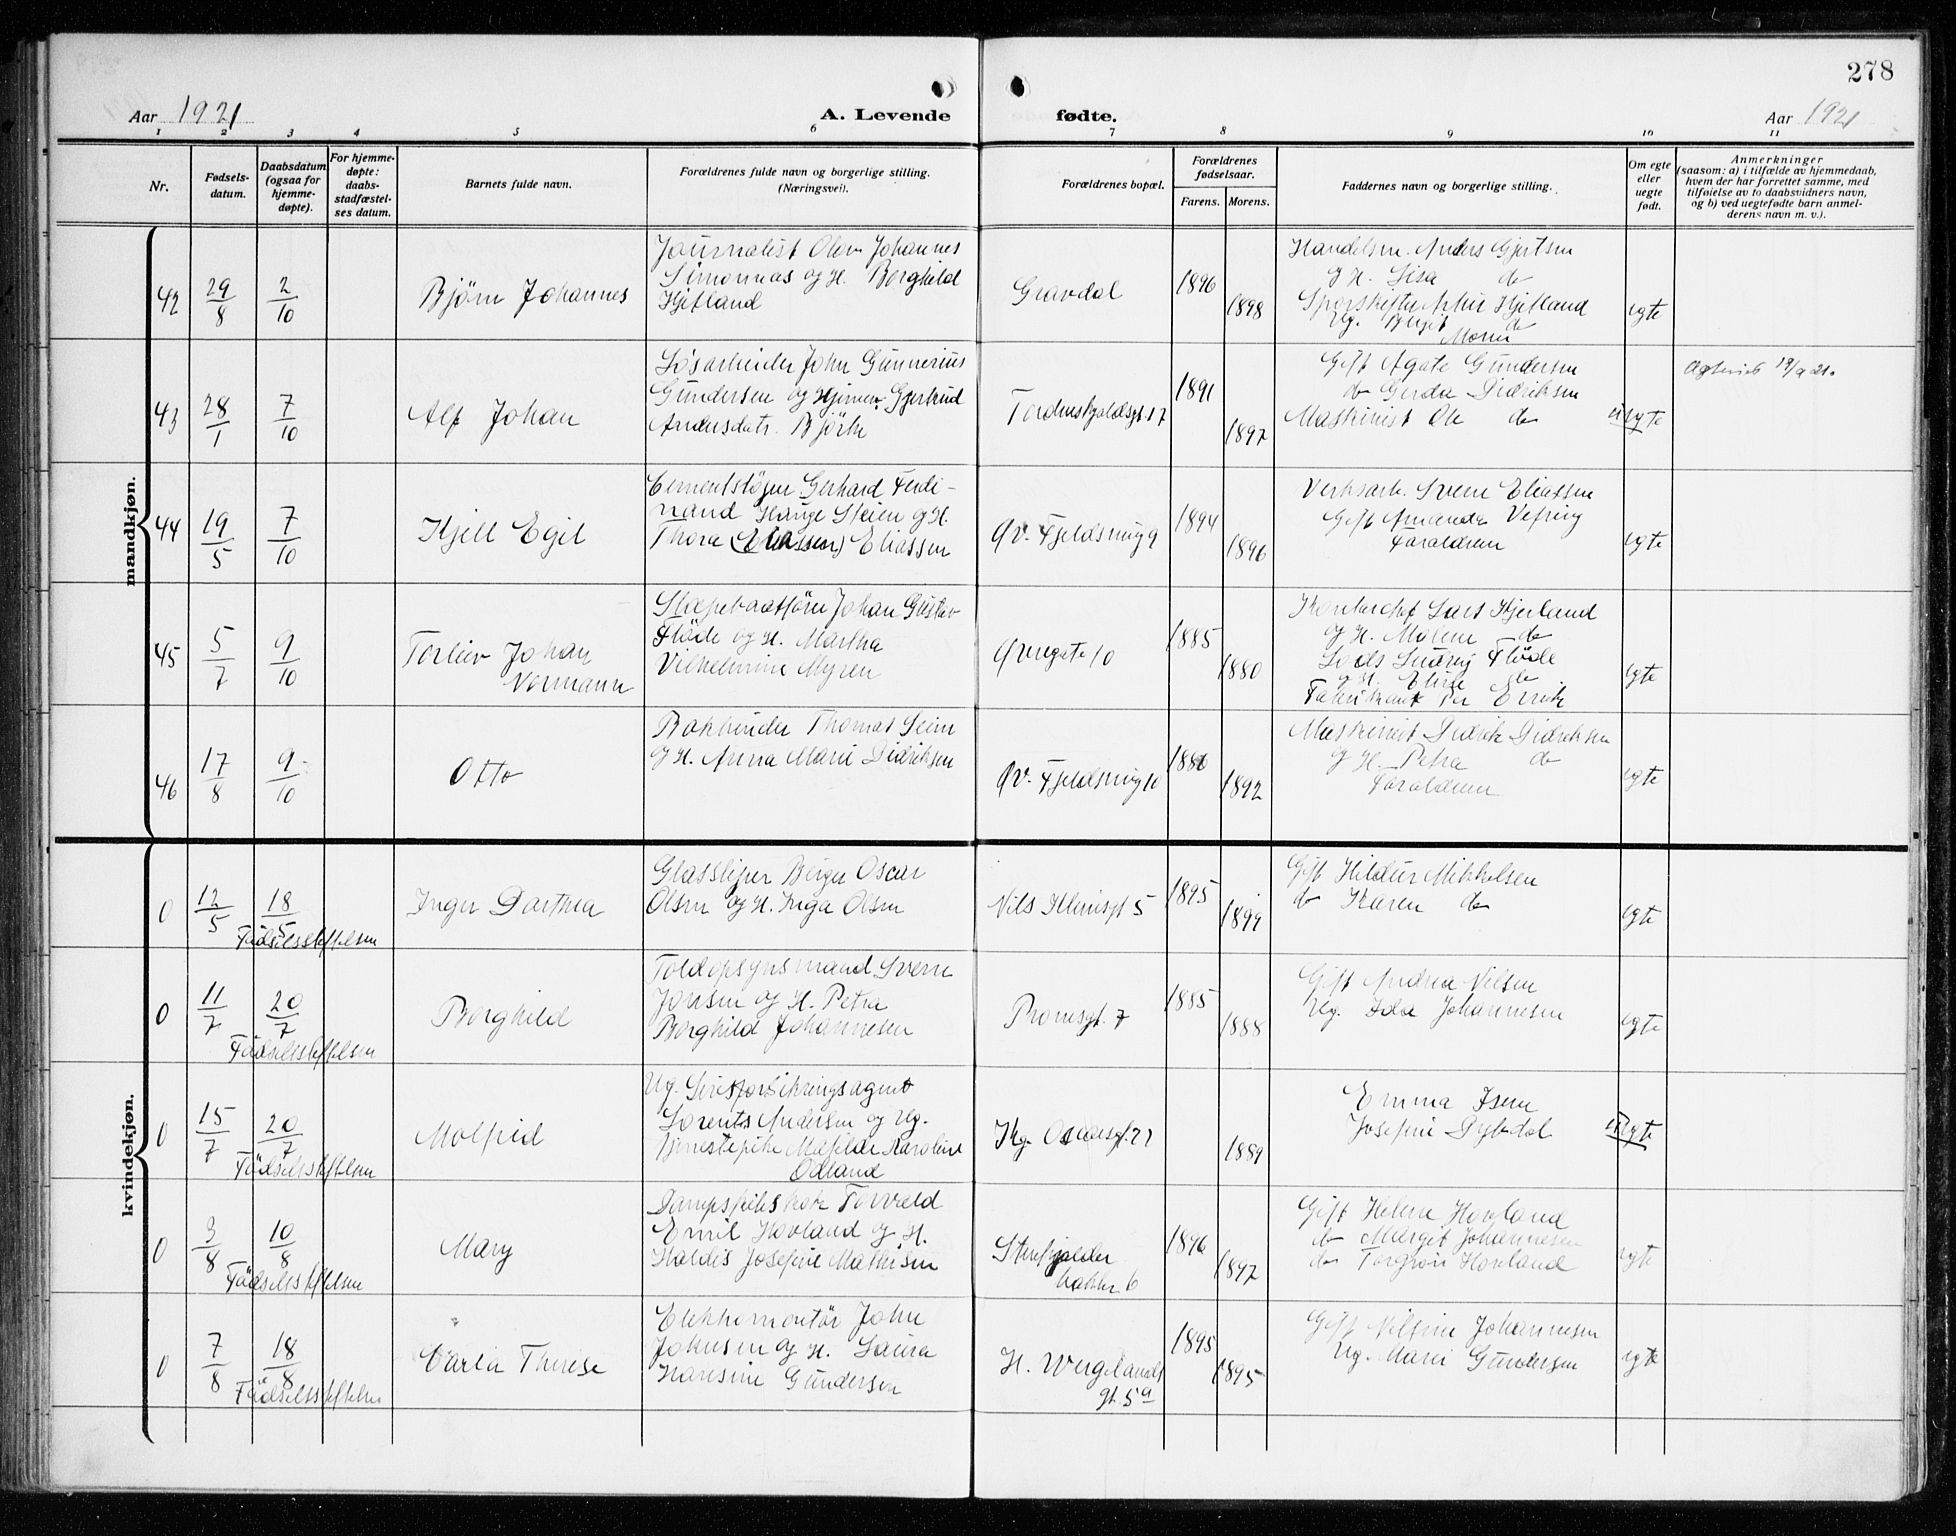 278
Aar 1921 A. Levende fødte. Aar 1921
1 2 3 4 5 6 7 8 9 10 11
Nr.
Fødsels-
datum.
Daabsdatum
(ogsaa for
hjemme-
døpte).
For hjemme-
døpte:
daabs-
stadfæstel-
ses datum.
Barnets fulde navn.
Forældrenes fulde navn og borgerlige stilling.
(Næringsvei).
Forældrenes bopæl.
Forældrenes
fødselsaar.
Farens. Morens.
Faddernes navn og borgerlige stilling.
Om egte
eller
uegte
født.
Anmerkninger
(saasom: a) i tilfælde av hjemmedaab,
hvem der har forrettet samme, med
tilføielse av to daabsvidners navn,
og b) ved uegtefødte barn anmel-
derens navn m. v.).
mandkjøn.
42 29/8 2/10 Bjørn Johannes
Journalist Olav Johannes
Simonnæs og H. Borghild
Hjetland
Gravdal 1896 1898
Handelsm. Anders Gjertsen
og H. Lisa do
Hjetland
Ug. Birgit do
Moren
egte
43 28/1 7/10 Alf Johan
Løsarbeider John Gunnerius
Gundersen og Hjemmev. Gjertrud
Andersdatr. Björke
Tordenskjoldsgt 17 1891 1897
Gift Agate Gundersen
do Gerda Didriksen
Maskinist Ole do
uegte
19/9 21.
44 19/5 7/10 Kjell Egil
Cementstøper Gerhard Ferdi-
nand Hauge Steien og H.
Thora (Eliassen) Eliassen
Øv. Fjeldsmug 9 1894 1896
Verksarb. Sverre Eliassen
Gift Amanda Vefring
Foraldrene
egte
45 5/7 9/10 Torleiv Johan
Normann
Slæpebaatfører Johan Gustav
Fløde og H. Martha
Vilhelmine Myren
Øvregate 10 1885 1880
Kontorchef Lars Hjerland
og H. Malene do
Lods Ludvig Fløde
og H. Elise do
Fabrikant Per Errik
egte
46 17/8 9/10 Otto
Bokbinder Thomas Seim
og H. Anna Marie Didriksen
Øv. Fjeldsmug 10 1886 1892
Maskinist Didrik Didriksen
og H. Petra do
Foraldrene
egte
kvindekjøn.
0 12/5 18/5 Inger Dorthea
Fødselsstiftelsen
Glassliper Birger Oscar
Olsen og H. Inga Olsen
Nils Klimsgt 5 1895 1899
Gift Hildur Mikkelsen
do Karen do
egte
0 11/7 20/7 Borghild
Fødselsstiftelsen
Toldopsynsmand Sverre
Jonsen og H. Petra
Borghild Johannesen
Promsgt. 7 1885 1888
Gift Andrea Nilsen
Ug. Ida Johannesen
egte
0 15/7 20/7 Molfrid
Fødselsstiftelsen
Ug. Livsforsikringsagent
Lorents Andersen og Ug.
Tjenestepike Matilde Karoline
Odland
Kg. Oscarsgt. 21 1889
Emma Isene
Josefine Dybdal
uegte
0 3/8 10/8 Mary
Fødselsstiftelsen
Dampskibskok Torvald
Emil Hovland og H.
Haldis Josefine Mathisen
Stenkjelder
bakken 6 1896 1897
Gift Helene Hovland
do Margit Johannesen
do Torgrim Hovland
egte
0 7/8 18/8 Carla Therese
Fødselsstiftelsen
Elektromontör John
Johnsen og H. Laura
Hansine Gundersen
H. Wergelands
gt. 5a 1895 1895
Gift Nilsine Johannesen
Ug. Marie Gundersen
egte